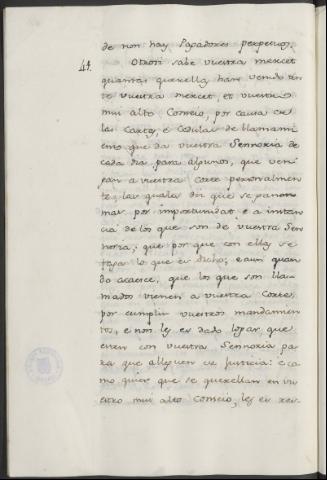 de non hay Pagadores perpetuos.
44. Otrosi sabe vuestra mercet
quantas querellas han venido an-
te vuestra mercet, et vuestro
mui alto Consejo, por causa de
las Cartas, e Cedulas de llamami-
ento que da vuestra Sennoria de
cada dia para algunos, que ven-
gan a vuestra Corte personalmen-
te; las quales diz que se ganan
mas por importunidat e a instan-
cia de los que son de vuestra Sen-
noria; que por que con ellas se
faga lo que es dicho; e aun quan-
do acaesce, que los que son lla-
mados vienen a vuestra Corte
por cumplir vuestros mandamien-
tos, e non les es dado logar, que
esten con vuestra Sennoria pa-
ra que alleguen de Justicia: e ca-
mo quier que se querellan en vu-
estro mui alto Consejo, les es res-